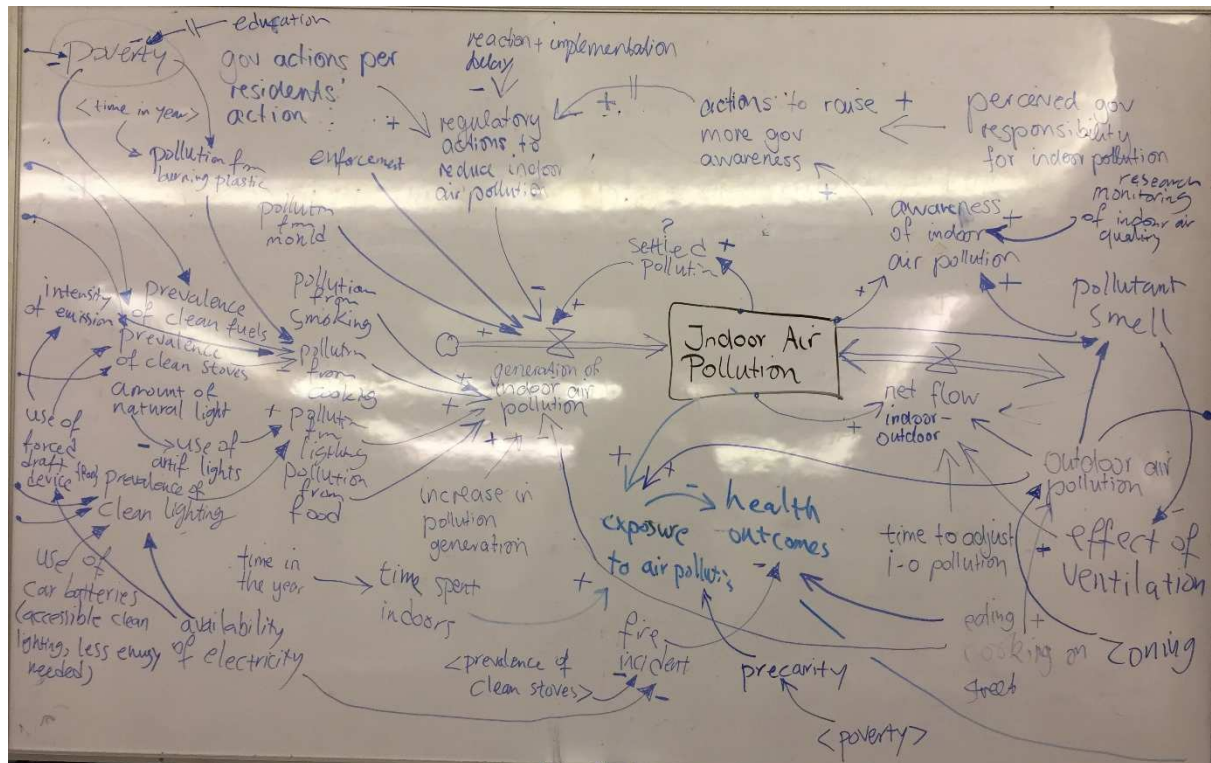 education
poverty
gov actions per
residents'
action
reaction + implementation
delay
<time in year>
pollution from
burning plastic
enforcement
regulatory
actions to
reduce indoor
air pollution
actions to raise
more gov
awareness
perceived gov
responsibility
for indoor pollution
research
monitoring
of indoor air
quality
awareness
of indoor
air pollution
pollutant
smell
pollutn
fm
mould
?
settled
pollutin
intensity
of emission
prevalence
of clean fuels
prevalence
of clean stoves
pollution
from
smoking
pollutn
from
cooking
generation of
indoor air
pollution
Indoor Air
Pollution
net flow
indoor-
outdoor
amount of
natural light
use of
artif lights
pollutn
fm
lighting
pollution
from
food
use of
forced
draft
device
prevalence of
clean lighting
increase in
pollution
generation
exposure
to air pollutn
health
outcomes
outdoor air
pollution
time to adjust
i-o pollution
effect of
ventilation
use of
car batteries
(accessible clean
lighting, less energy
needed)
availability
of electricity
time in
the year
time spent
indoors
<prevalence of
clean stoves>
fire
incident
precarity
<poverty>
eating
cooking on
street
zoning